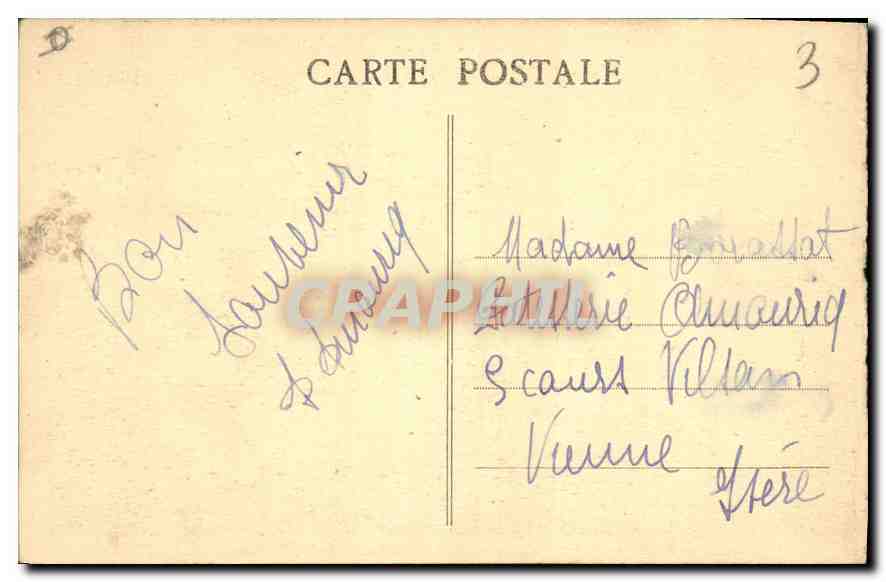 CARTE POSTALE
3
Bon
Souvenir
Madame
Amouriq
5 cours
Vienne
Isère
CPAPHIL